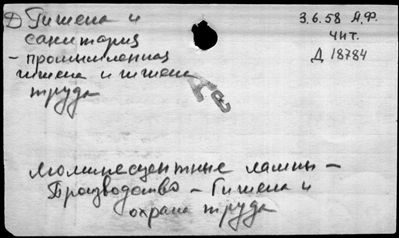 Д Гигиена и
санитария
- промышленная
гигиена и гигиена
труда
3.6.58 А.Ф.
чит.
Д 18784
Люминесцентные лампы -
Производство - Гигиена и
охрана труда